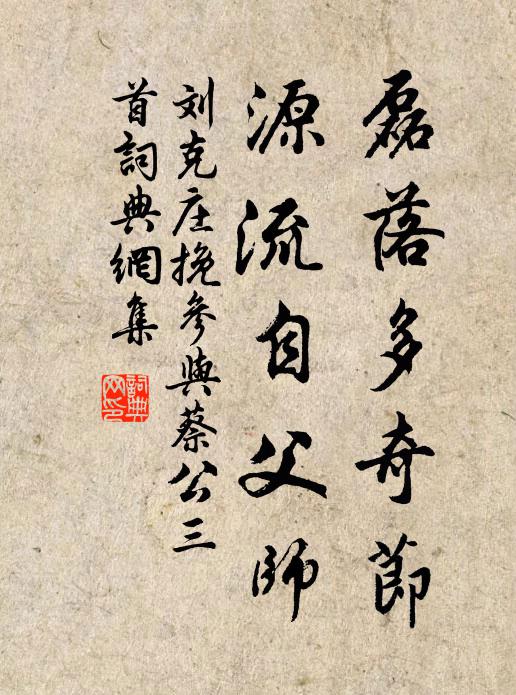 磊落多奇節
源流自父師
刘克庄挽參與蔡公三
首詞典網集
詞典网印